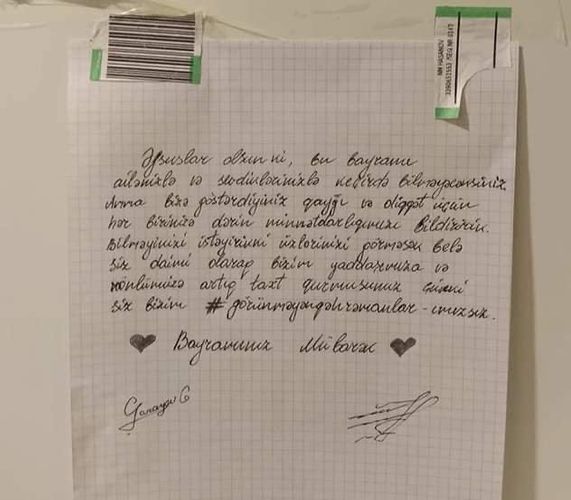 Əfsuslar olsun ki, bu bayramı
ailənizlə və sevdiklərinizlə keçirdə bilməyəcəksiniz.
Amma bizə göstərdiyiniz qayğı və diqqət üçün
hər birinizə dərin minnətdarlığımızı bildiririk.
Bilməyinizi istəyirik ki üzlərinizi görməsək belə
siz daimi olaraq bizim yaddaşımıza və
könlümüzə artıq taxt qurmusunuz çünki
siz bizim #görünməyənqəhrəmanlar-ımızsız.
Bayramınız Mübarək
Qarayev G